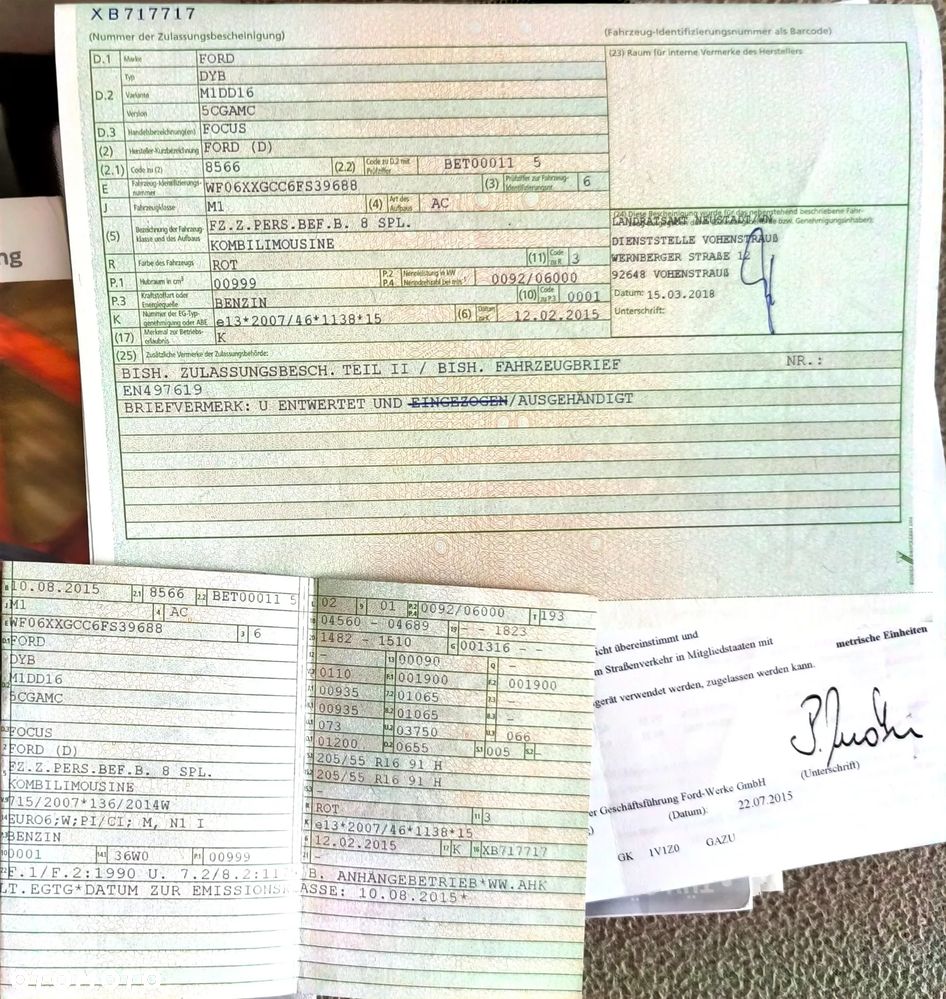 XB717717
(Nummer der Zulassungsbescheinigung)
(Fahrzeug-Identifizierungsnummer als Barcode)
D.1 Marke FORD
(23) Raum für interne Vermerke des Herstellers
Typ DYB
D.2 Variante M1DD16
Version 5CGAMC
D.3 Handelsbezeichnung(en) FOCUS
(2) Hersteller-Kurzbezeichnung FORD (D)
(2.1) Code zu (2) 8566 (2.2) Code zu D.2 mit Prüfziffer BET00011 5
E Fahrzeug-Identifizierungsnummer WF06XXGCC6FS39688 (3) Prüfziffer zur Fahrzeug-Identifizierungsnr. 6
J Fahrzeugklasse M1 (4) Art des Aufbaus AC
(5) Bezeichnung der Fahrzeugklasse und des Aufbaus FZ.Z.PERS.BEF.B. 8 SPL.
KOMBILIMOUSINE
R Farbe des Fahrzeugs ROT (11) Code zu R 3
P.1 Hubraum in cm³ 00999 P.2 P.4 Nennleistung in kW Nenndrehzahl bei min⁻¹ 0092/06000
P.3 Kraftstoffart oder Energiequelle BENZIN (10) Code zu P.3 0001
K Nummer der EG-Typgenehmigung oder ABE e13*2007/46*1138*15 (6) Datum zu K 12.02.2015
(17) Merkmal zur Betriebserlaubnis K
(24) Diese Bescheinigung wurde für das nebenstehend beschriebene Fahrzeug
LANDRATSAMT NEUSTADT/WN
DIENSTSTELLE VOHENSTRAUß
WERNBERGER STRAßE 12
92648 VOHENSTRAUß
Datum: 15.03.2018
Unterschrift:
(25) Zusätzliche Vermerke der Zulassungsbehörde:
BISH. ZULASSUNGSBESCH. TEIL II / BISH. FAHRZEUGBRIEF NR.:
EN497619
BRIEFVERMERK: U ENTWERTET UND EINGEZOGEN/AUSGEHÄNDIGT
ng
10.08.2015 2.1 8566 2.2 BET00011 5
M1 4 AC
WF06XXGCC6FS39688 3 6
FORD
DYB
M1DD16
5CGAMC
FOCUS
FORD (D)
FZ.Z.PERS.BEF.B. 8 SPL.
KOMBILIMOUSINE
715/2007*136/2014W
EURO6;W;PI/CI; M, N1 I
BENZIN
0001 14.1 36W0 P.1 00999
F.1/F.2:1990 U. 7.2/8.2:11
LT.EGTG*DATUM ZUR EMISSIONSK
02 9 01 P.2 P.4 0092/06000 T 193
04560 - 04689 19 - - 1823
1482 - 1510 G 001316 - -
- 13 00090 Q -
0110 F.1 001900 F.2 001900
00935 7.2 01065 7.3 -
00935 8.2 01065 8.3 -
073 U.2 03750 U.3 066
01200 O.2 0655 S.1 005 S.2 -
205/55 R16 91 H
205/55 R16 91 H
-
ROT 11 3
e13*2007/46*1138*15
12.02.2015 17 K 16 XB717717
-
B. ANHÄNGEBETRIEB*WW.AHK
ASSE: 10.08.2015*
icht übereinstimmt und
m Straßenverkehr in Mitgliedstaaten mit metrische Einheiten
gerät verwendet werden, zugelassen werden kann.
er Geschäftsführung Ford-Werke GmbH (Unterschrift)
(Datum): 22.07.2015
GK 1V1Z0 GAZU